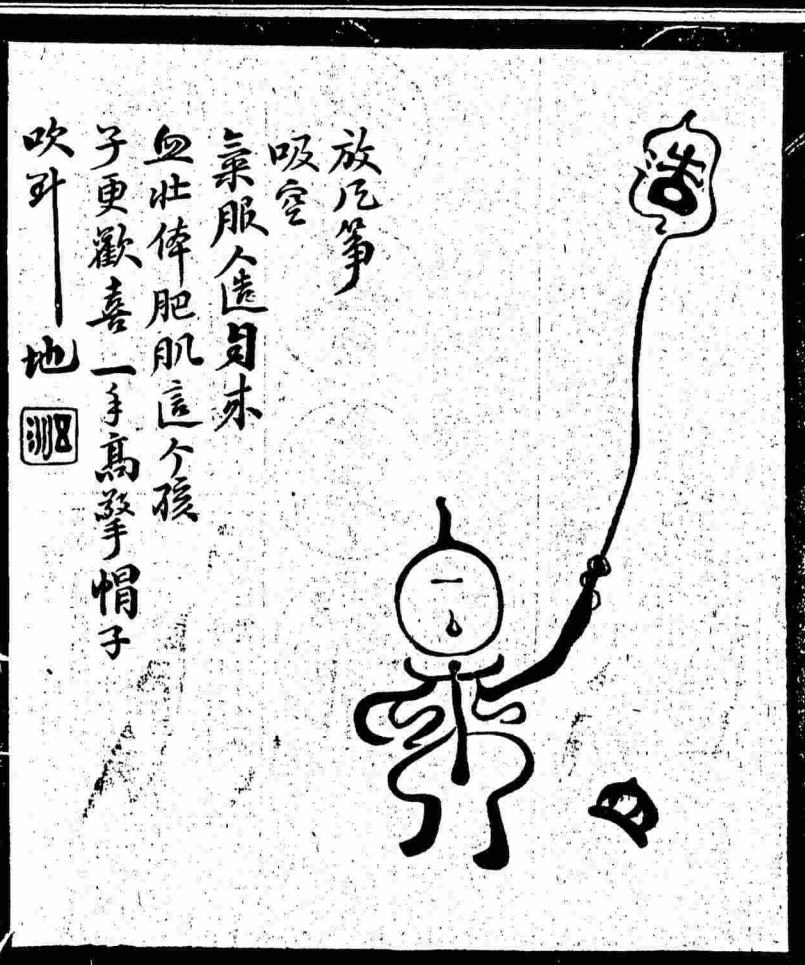 放風筝
吸空
氣服人造自来
血壯体肥肌這个孩
子更歡喜一手高擎帽子
吹到地